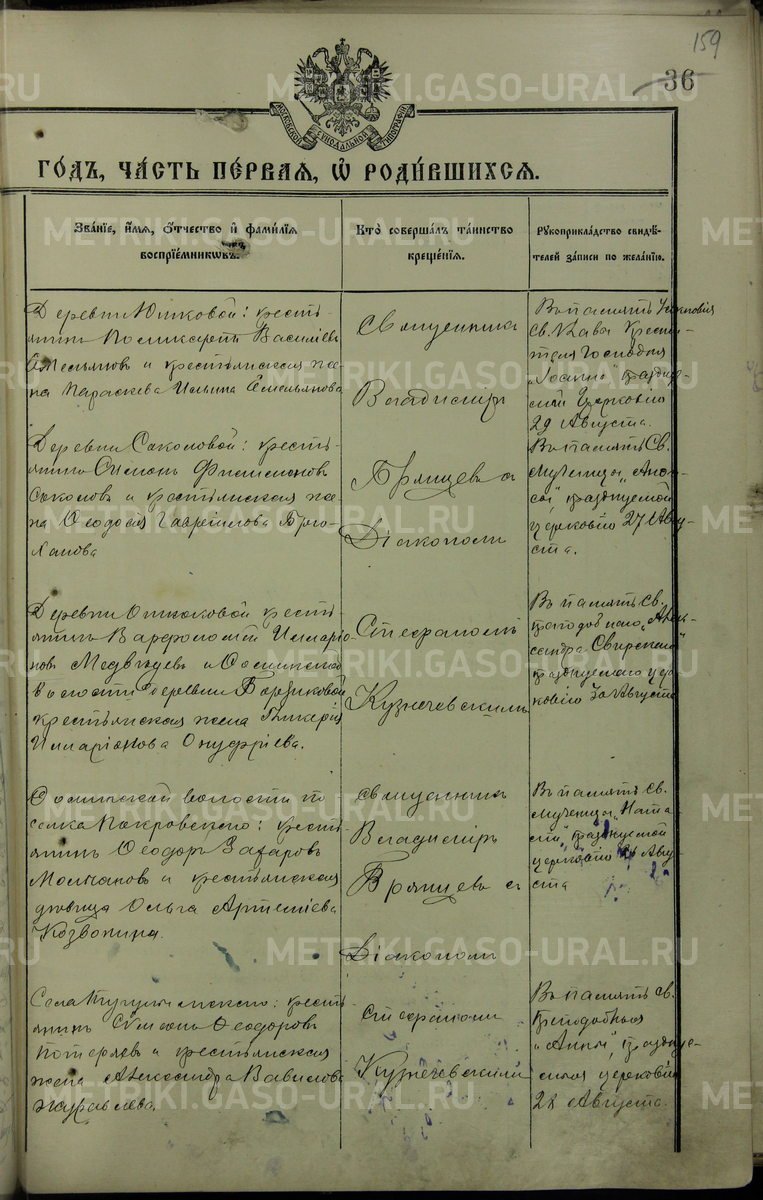 159
36
METRIKI.GASO-URAL.RU
МОСКОВСКОЙ СѴНОДАЛЬНОЙ ТИПОГРАФІИ
ГОДЪ, ЧАСТЬ ПЕРВАЯ, Ѡ РОДИВШИХСЯ.
Званіе, имя, отчество и фамилія воспріемниковъ.
Кто совершалъ таинство крещенія.
Рукоприкладство свидѣтелей записи по желанію.
Деревни Юшковой: кресть-
янинъ Поликарпъ Василіевъ
Емельяновъ и крестьянская же-
на Параскева Ильина Емельянова
Священникъ
Владиміръ
Въ память
Св. Главы Крести-
теля Господня
"Іоанна"
Церковію
29 Августа.
Деревни Соколовой: кресть-
янинъ Симонъ Филимоновъ
Соколовъ и крестьянская же-
на Ѳеодосія Гавриилова
Брянцевъ съ
Діакономъ
Въ память Св.
Мученицы
празднуемой
церковію 27 Авгу-
ста.
Деревни кресть-
янинъ Варфоломей Илларіо-
новъ Медвѣдевъ и
волости деревни
крестьянская жена Гликерія
Илларіонова Онуфріева.
Стефаномъ
Кузнечевскимъ
Въ память Св.
преподобнаго "Алек-
сандра Свирскаго"
празднуемаго цер-
ковію 30 Августа
волости по-
селка Покровскаго: кресть-
янинъ Ѳеодоръ Захаровъ
Молчановъ и крестьянская
дѣвица Ольга Артеміева
Козвонина.
Священникъ
Владиміръ
Брянцевъ съ
Діакономъ
Въ память Св.
мученицы "Ната-
ліи", празднуемой
церковію 26 Авгу-
ста
Села кресть-
янинъ Симеонъ Ѳеодоровъ
Потеряевъ и крестьянская
жена Александра Вавилова
Журавлева.
Стефаномъ
Кузнечевскимъ
Въ память Св.
Преподобныя
"Анны", праздну-
емыя церковію
28 Августа.